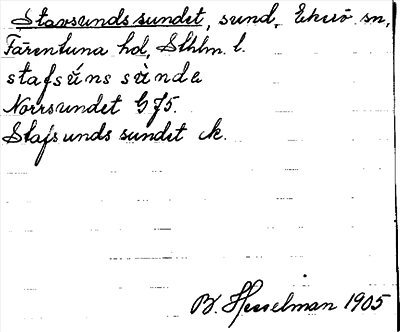 Stavsundssundet, sund, Ekerö sn,
Färentuna hd, Sthlm. l.
stafsúns sùnde
Norrsundet G f5.
Stafsundssundet ek.
B. Hesselman 1905